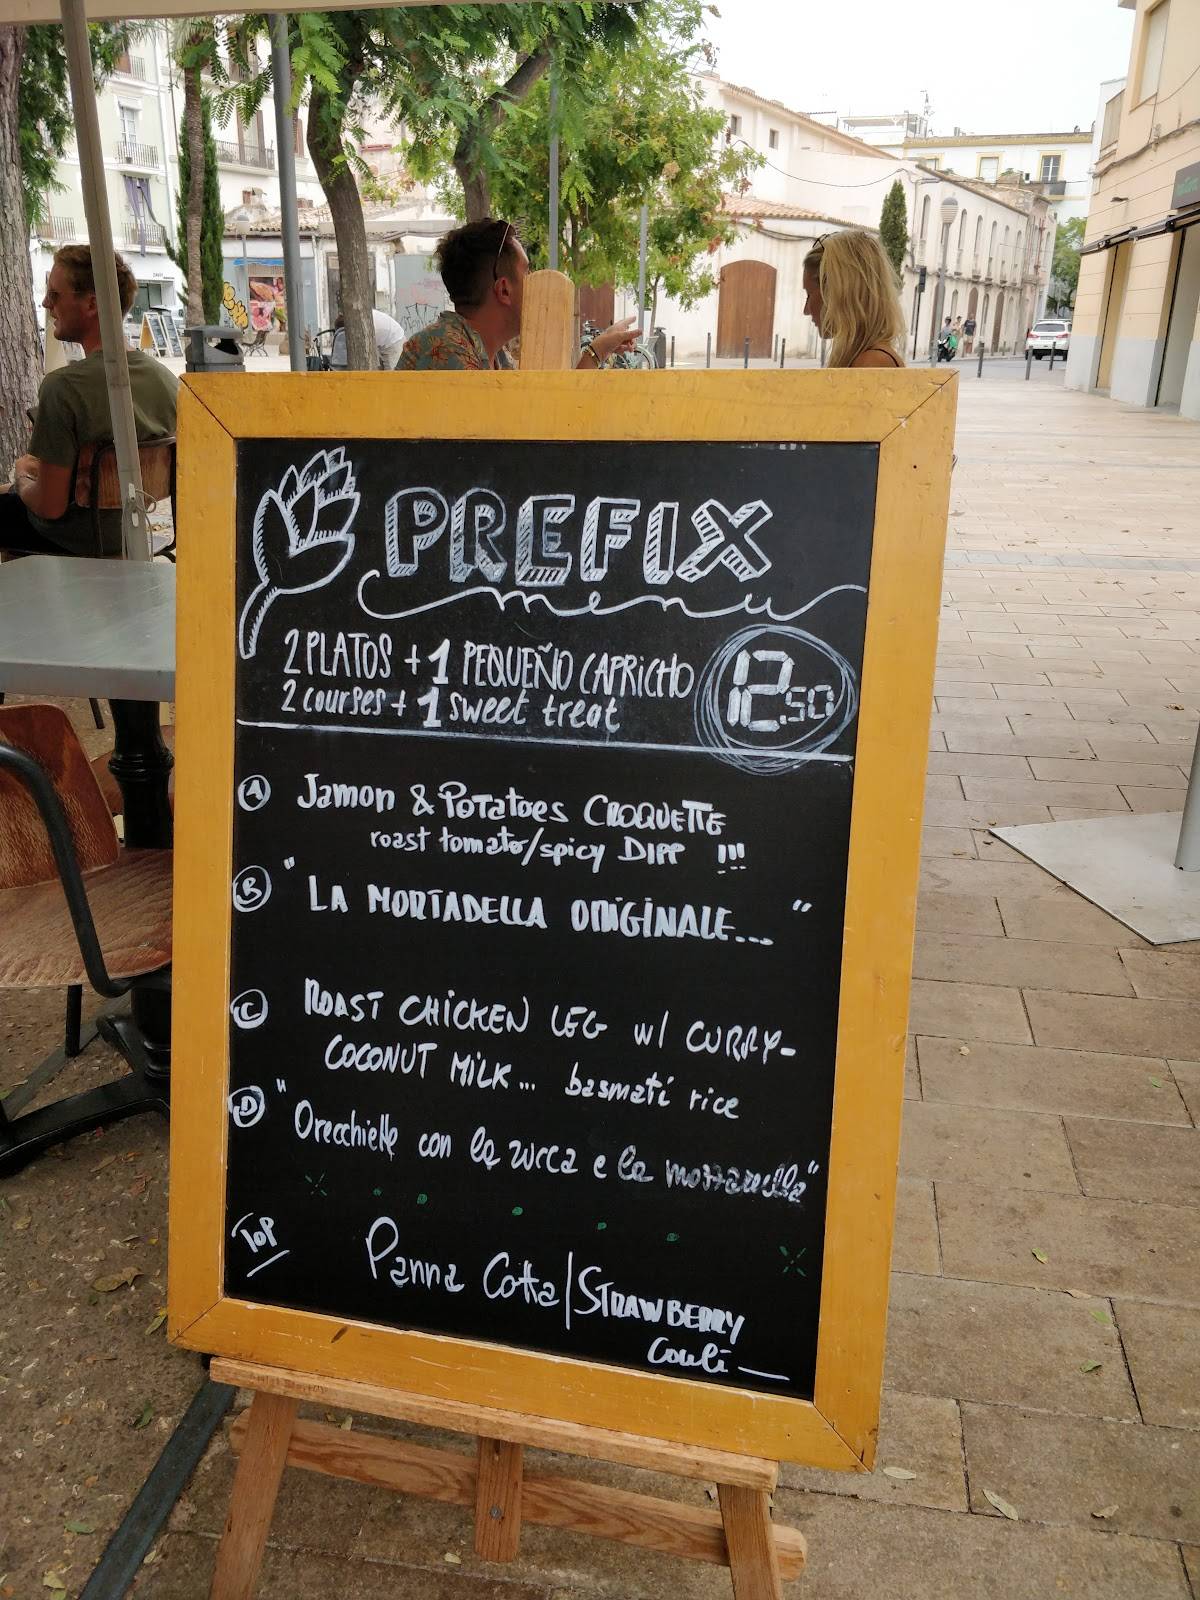 PREFIX
menu
2 PLATOS + 1 PEQUEÑO CAPRICHO
2 courses + 1 sweet treat
12.50
A Jamon & Potatoes CROQUETTE
roast tomato/spicy DIPP !!!
B "LA MORTADELLA ORIGINALE..."
C ROAST CHICKEN LEG w/ CURRY-
COCONUT MILK... basmati rice
D "Orecchiette con la zucca e la mozzarella"
TOP Panna Cotta/STRAWBERRY
Couli